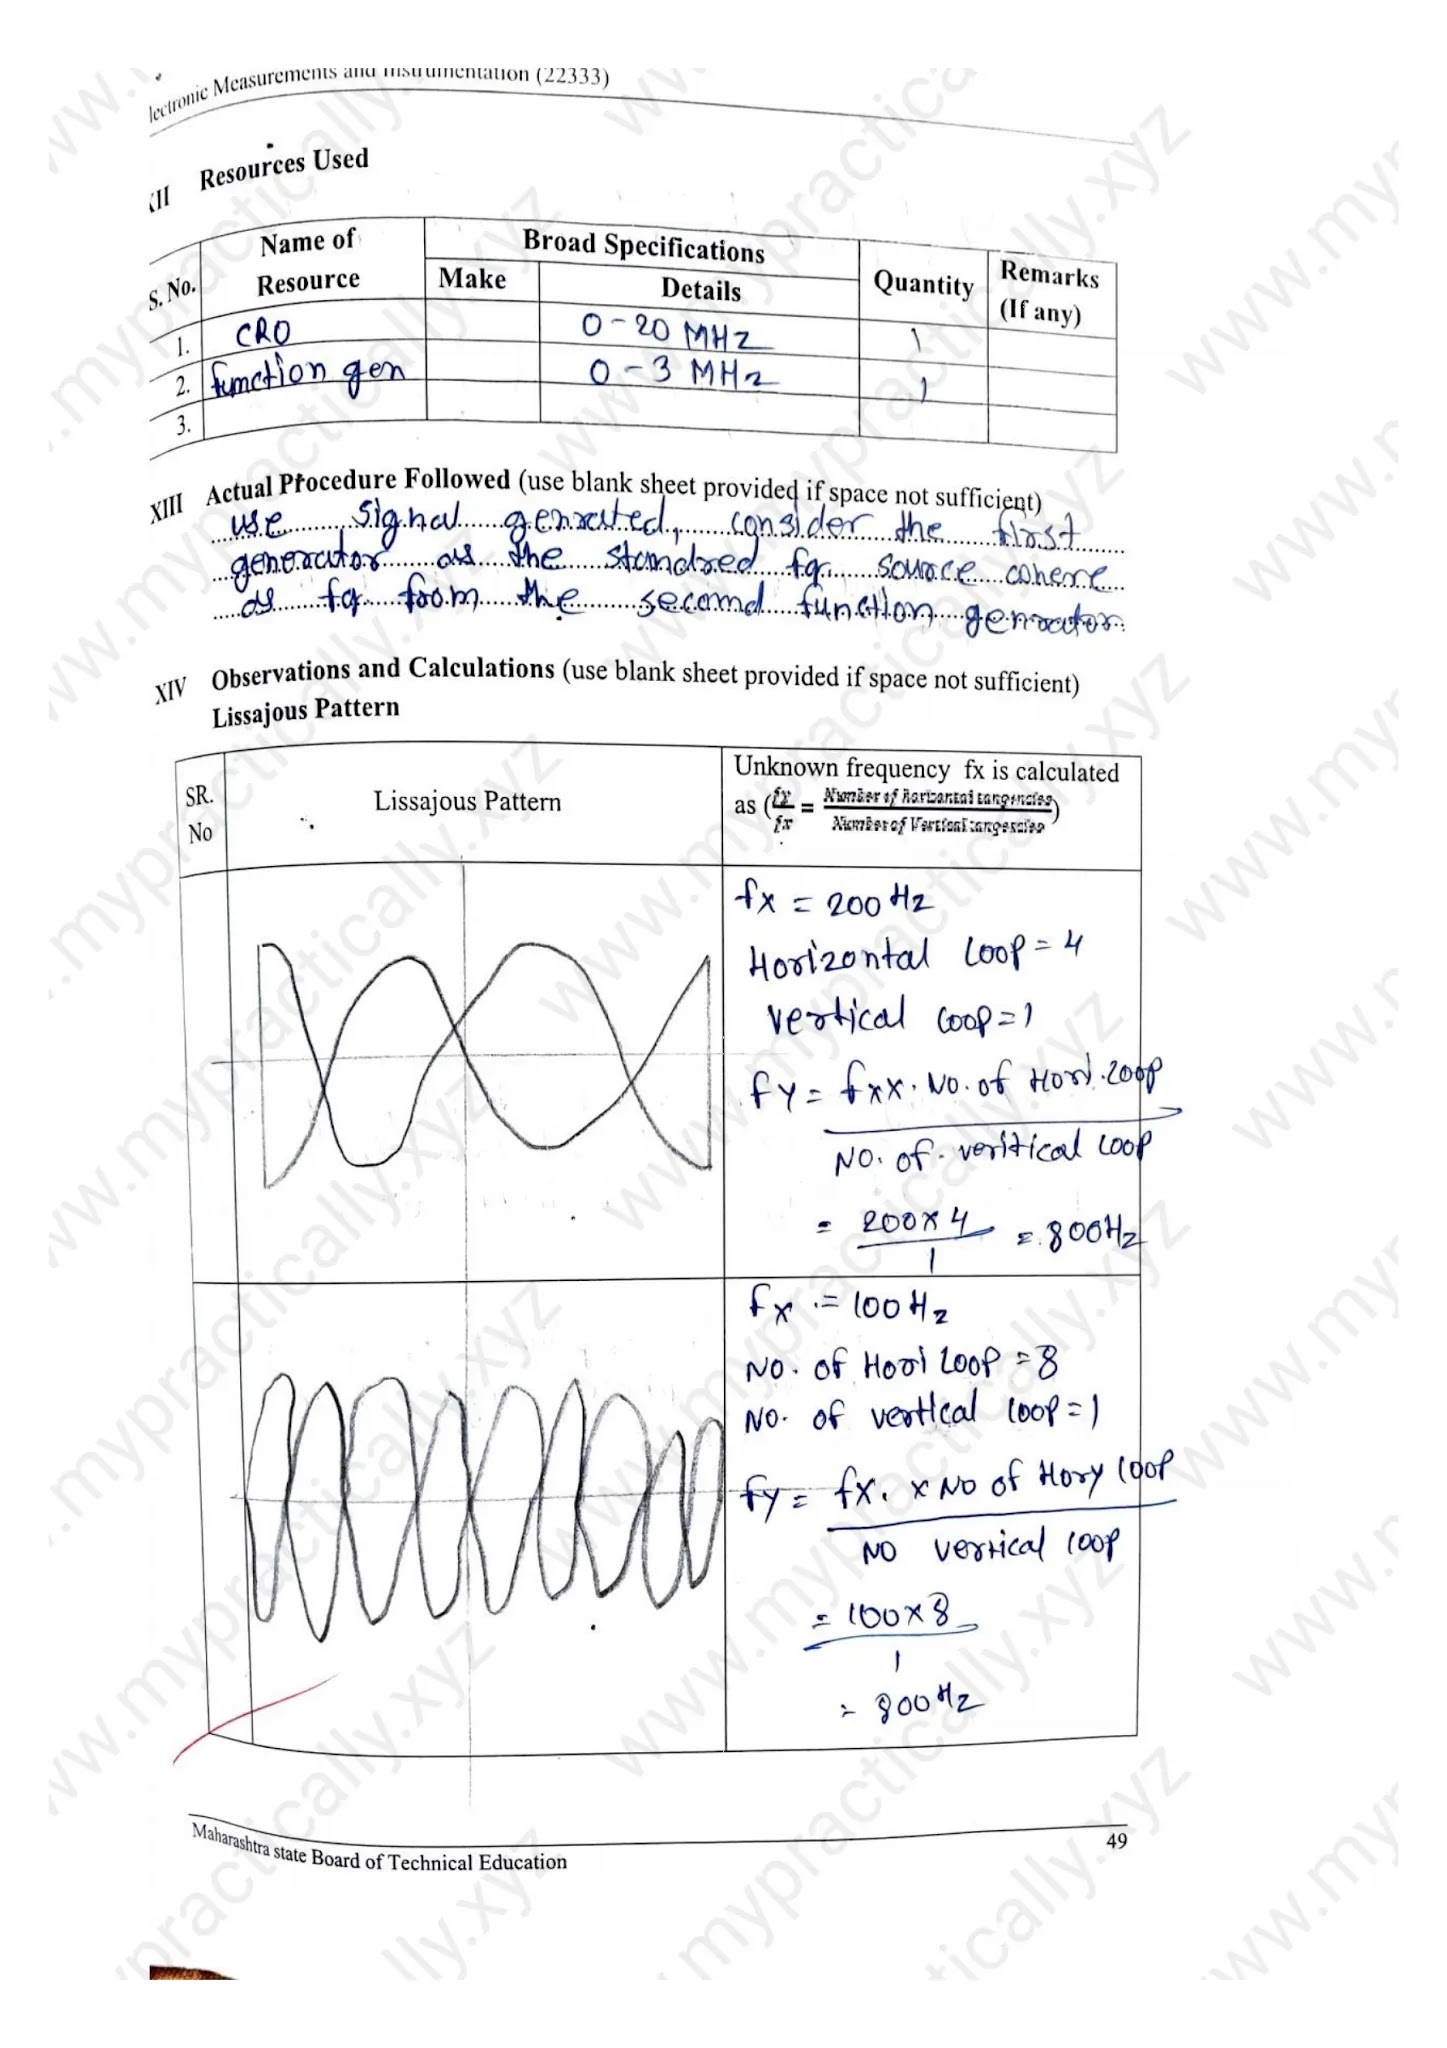 lectronic Measurements and Instrumentation (22333)
XII Resources Used
S. No. Name of Resource Broad Specifications Quantity Remarks (If any)
Make Details
1. CRO 0-20 MHz 1
2. function gen 0-3 MHz 1
3.
XIII Actual Procedure Followed (use blank sheet provided if space not sufficient)
use signal genrated, consider the first
generator as the standred fq. source cohere
as fq from the second function genrator.
XIV Observations and Calculations (use blank sheet provided if space not sufficient)
Lissajous Pattern
SR. No
Lissajous Pattern
Unknown frequency fx is calculated
as (fy/fx = Number of horizontal tangencies/Number of Vertical tangencies)
fx = 200 Hz
Horizontal loop = 4
vertical loop = 1
fy = fxx. No. of Hori. loop
No. of. veritical loop
= 200 x 4 / 1 = 800Hz
fx = 100 Hz
No. of Hori loop = 8
No. of vertical loop = 1
fy = fx. x No of Hory loop
No vertical loop
= 100 x 8
1
= 800 Hz
Maharashtra state Board of Technical Education
49
www.mypractically.xyz